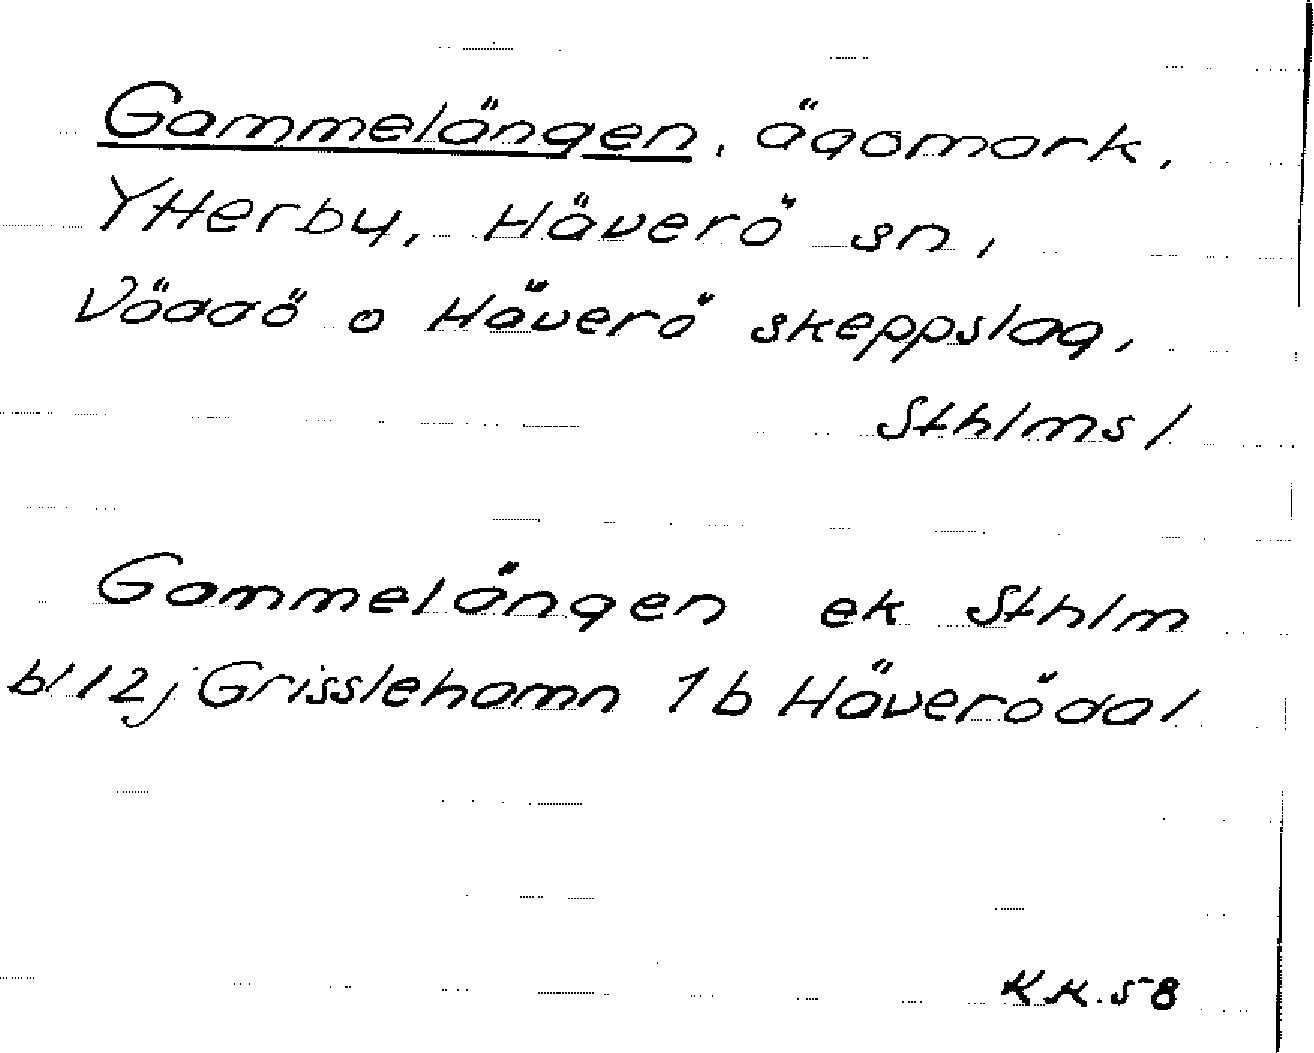 Gammelängen, ägomark,
Ytterby, Häverö sn,
Väddö o Häverö skeppslag,
Sthlms l
Gammelängen ek Sthlm
bl 12j Grisslehamn 1b Häverödal
KK.58